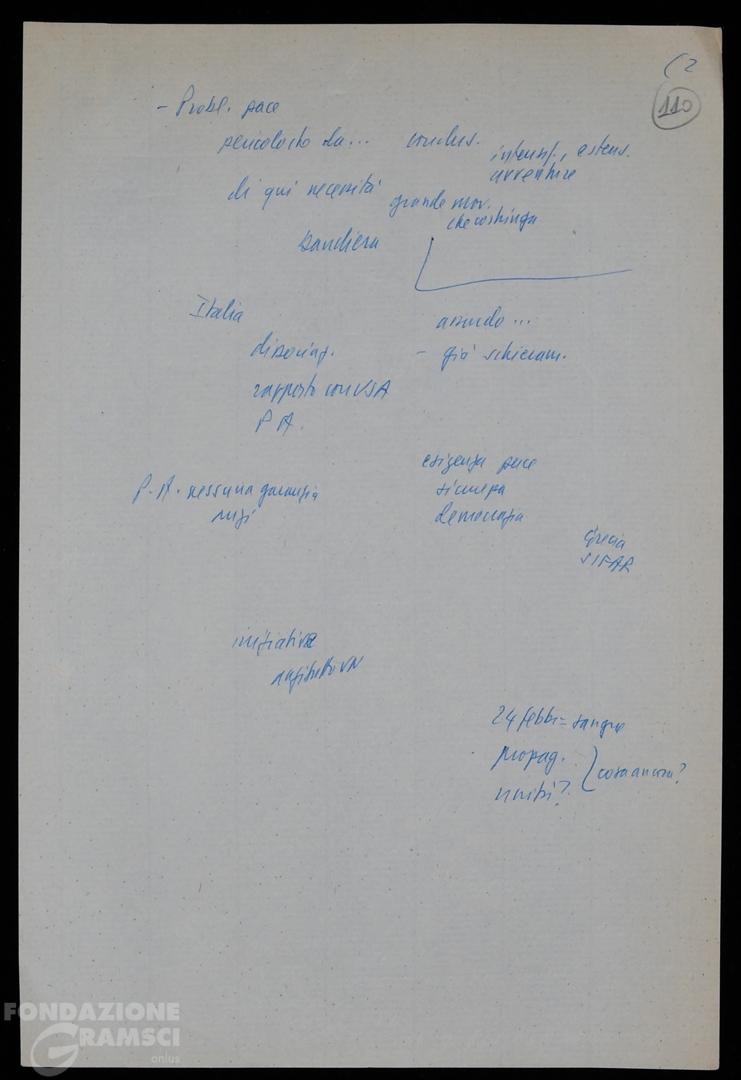 (2
110
- Probl. pace
pericolo sto da... conclus.
intensif., estens.
avventure
di qui necessità grande mov.
che costringa
bandiera
Italia
assurdo...
dissociaz. - già schieram.
rapporto con USA
P A.
esigenza pace
P. A. nessuna garanzia sicurezza
anzi democrazia
Grecia
SIFAR
iniziative
VN
24 febbr = sangue
propag.
unità? cosa ancora?
FONDAZIONE
GRAMSCI
onlus